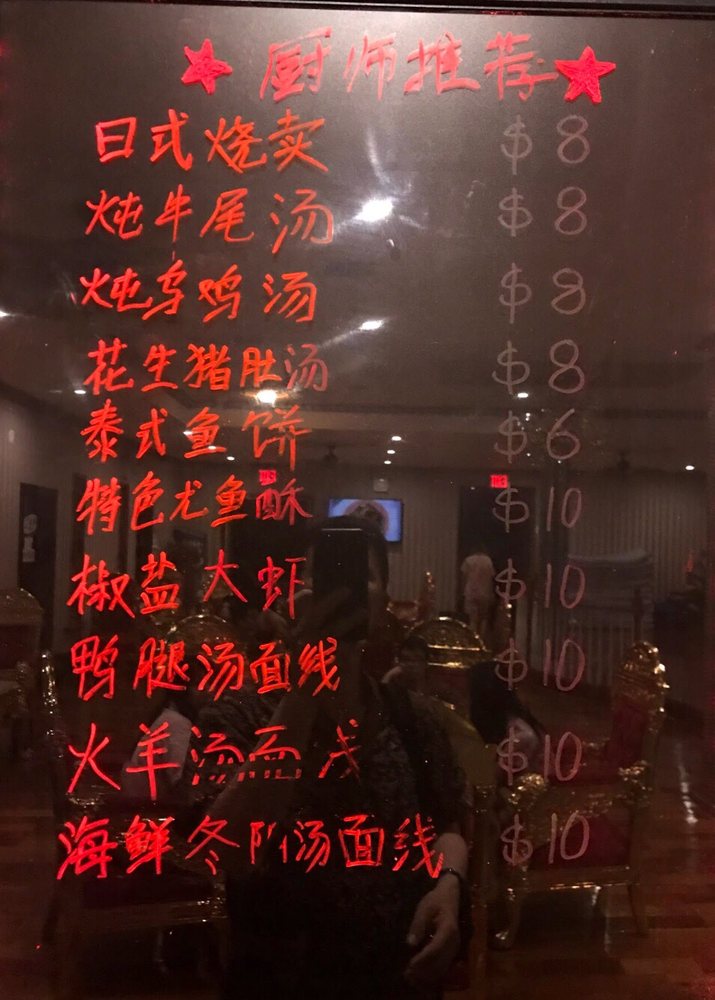 ★ 厨师推荐 ★
日式烧卖 $8
炖牛尾汤 $8
炖乌鸡汤 $8
花生猪肚汤 $8
泰式鱼饼 $6
特色尤鱼酥 $10
椒盐大虾 $10
鸭腿汤面线 $10
火羊汤面 $10
海鲜冬阴汤面线 $10